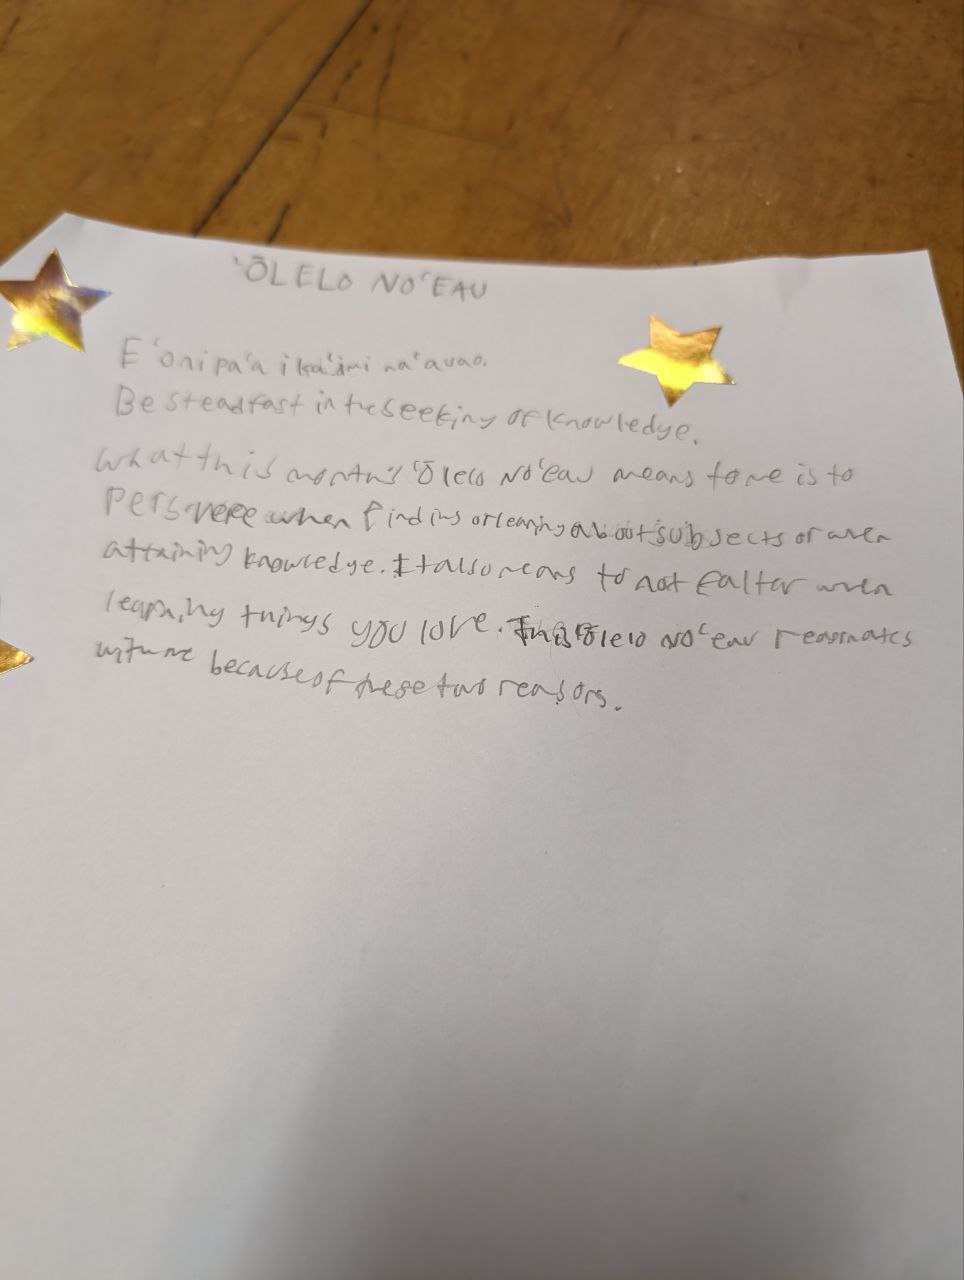 ʻŌLELO NOʻEAU
Eʻonipaʻa i kaʻimi naʻauao.
Be steadfast in the seeking of knowledge.
What this month's ʻŌlelo Noʻeau means to me is to
Persevere when finding or learning about subjects or when
attaining knowledge. It also means to not faltor when
learning things you love. This ʻŌlelo Noʻeau reasonates
with me because of these two reasons.